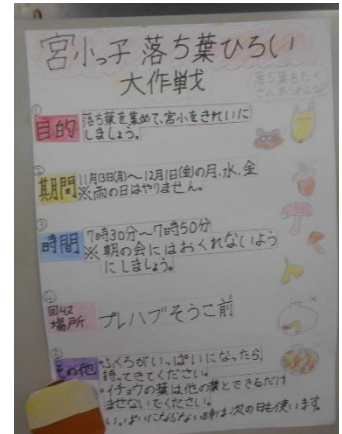 宮小っ子 落ち葉ひろい
大作戦
落ち葉をたく
さんあつめよう
①
目的
落ち葉を集めて、宮小をきれいに
しましょう。
②
期間
11月13日(月)～12月1日(金)の月、水、金
※雨の日はやりません。
③
時間
7時30分～7時50分
※朝の会にはおくれないよう
にしましょう。
④
回収
場所
プレハブそうこ前
⑤
その他
・ふくろがいっぱいになったら、
持ってきてください。
・イチョウの葉は他の葉とできるだけ
まぜないでください。
いっぱいにならない時は次の日も使います。